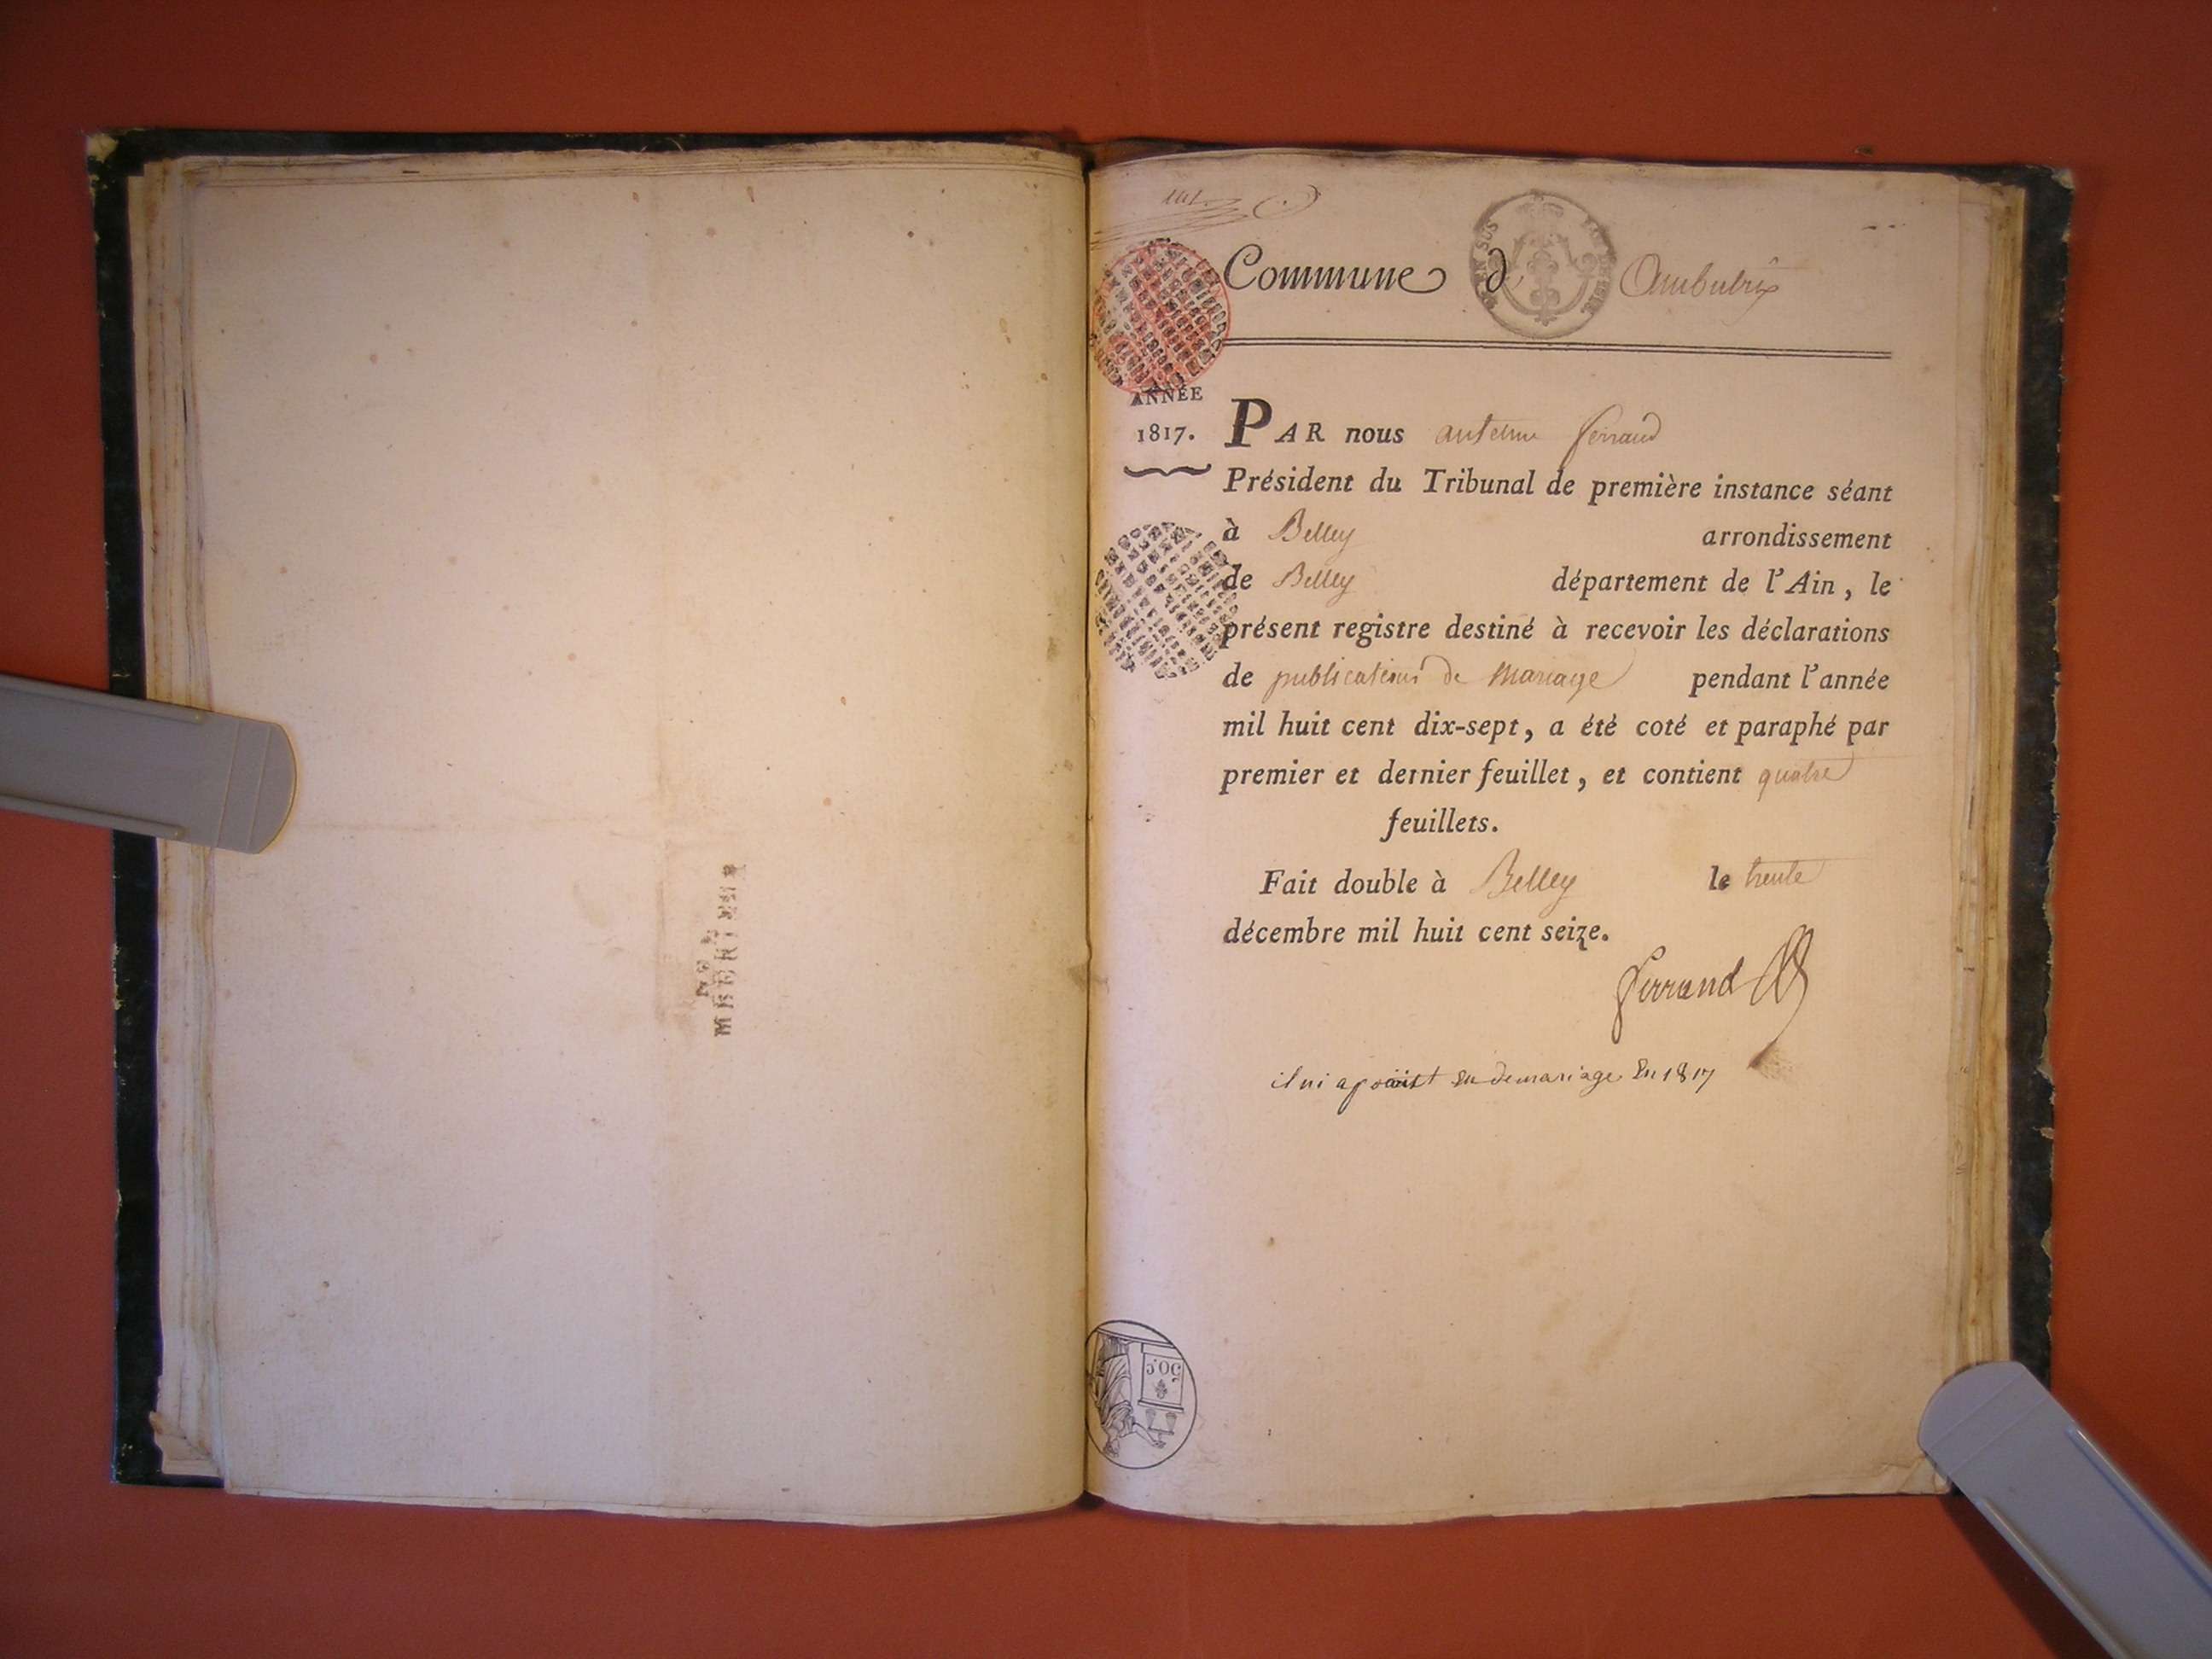 Commune d' Ambutrix
ANNÉE
1817.
PAR nous antelme ferrand
Président du Tribunal de première instance séant
à Belley arrondissement
de Belley département de l'Ain, le
présent registre destiné à recevoir les déclarations
de publications de Mariage pendant l'année
mil huit cent dix-sept, a été coté et paraphé par
premier et dernier feuillet, et contient quatre
feuillets.
Fait double à Belley le trente
décembre mil huit cent seize.
ferrand
il ni a point eu de mariage En 1817
50 c.